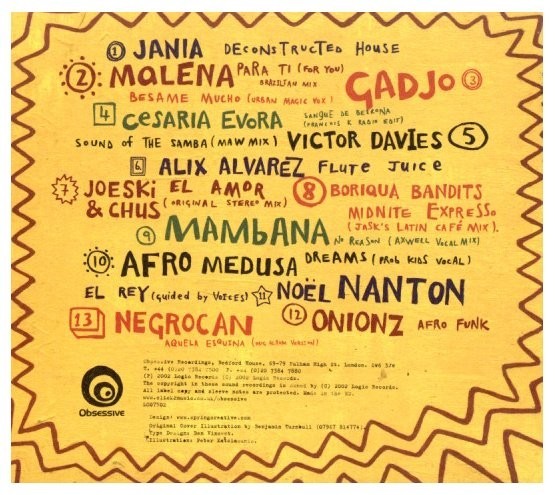 1 JANIA DECONSTRUCTED HOUSE
2 MALENA PARA TI (FOR YOU)
BRAZILIAN MIX
BESAME MUCHO (URBAN MAGIC VOX) GADJO 3
4 CESARIA EVORA SANGUE DE BEIRONA
(FRANCOIS K RADIO EDIT)
SOUND OF THE SAMBA (MAW MIX) VICTOR DAVIES 5
6 ALIX ALVAREZ FLUTE JUICE
7 JOESKI & CHUS EL AMOR
(ORIGINAL STEREO MIX)
8 BORIQUA BANDITS
MIDNITE EXPRESSO
(JASK'S LATIN CAFÉ MIX).
9 MAMBANA NO REASON (AXWELL VOCAL MIX)
10 AFRO MEDUSA DREAMS (PROB KIDS VOCAL)
EL REY (GUIDED BY VOICES) 11 NOËL NANTON
12 ONIONZ AFRO FUNK
13 NEGROCAN
AQUELA ESQUINA
Obsessive
Obsessive Recordings, Bedford House, 69-79 Fulham High St. London. SW6 3JW
T. +44 (0)20 7384 7500 F. +44 (0)20 7384 7880
(P) 2002 Logic Records (C) 2002 Logic Records.
The copyright in these sound recordings is owned by (C) 2002 Logic Records.
All label copy and sleeve notes are protected. Made in the EU.
www.click2music.co.uk/obsessive
Design: www.springcreative.com
Original Cover Illustration by Benjamin Turnbull
Type Design: Dan
Illustration: Peter